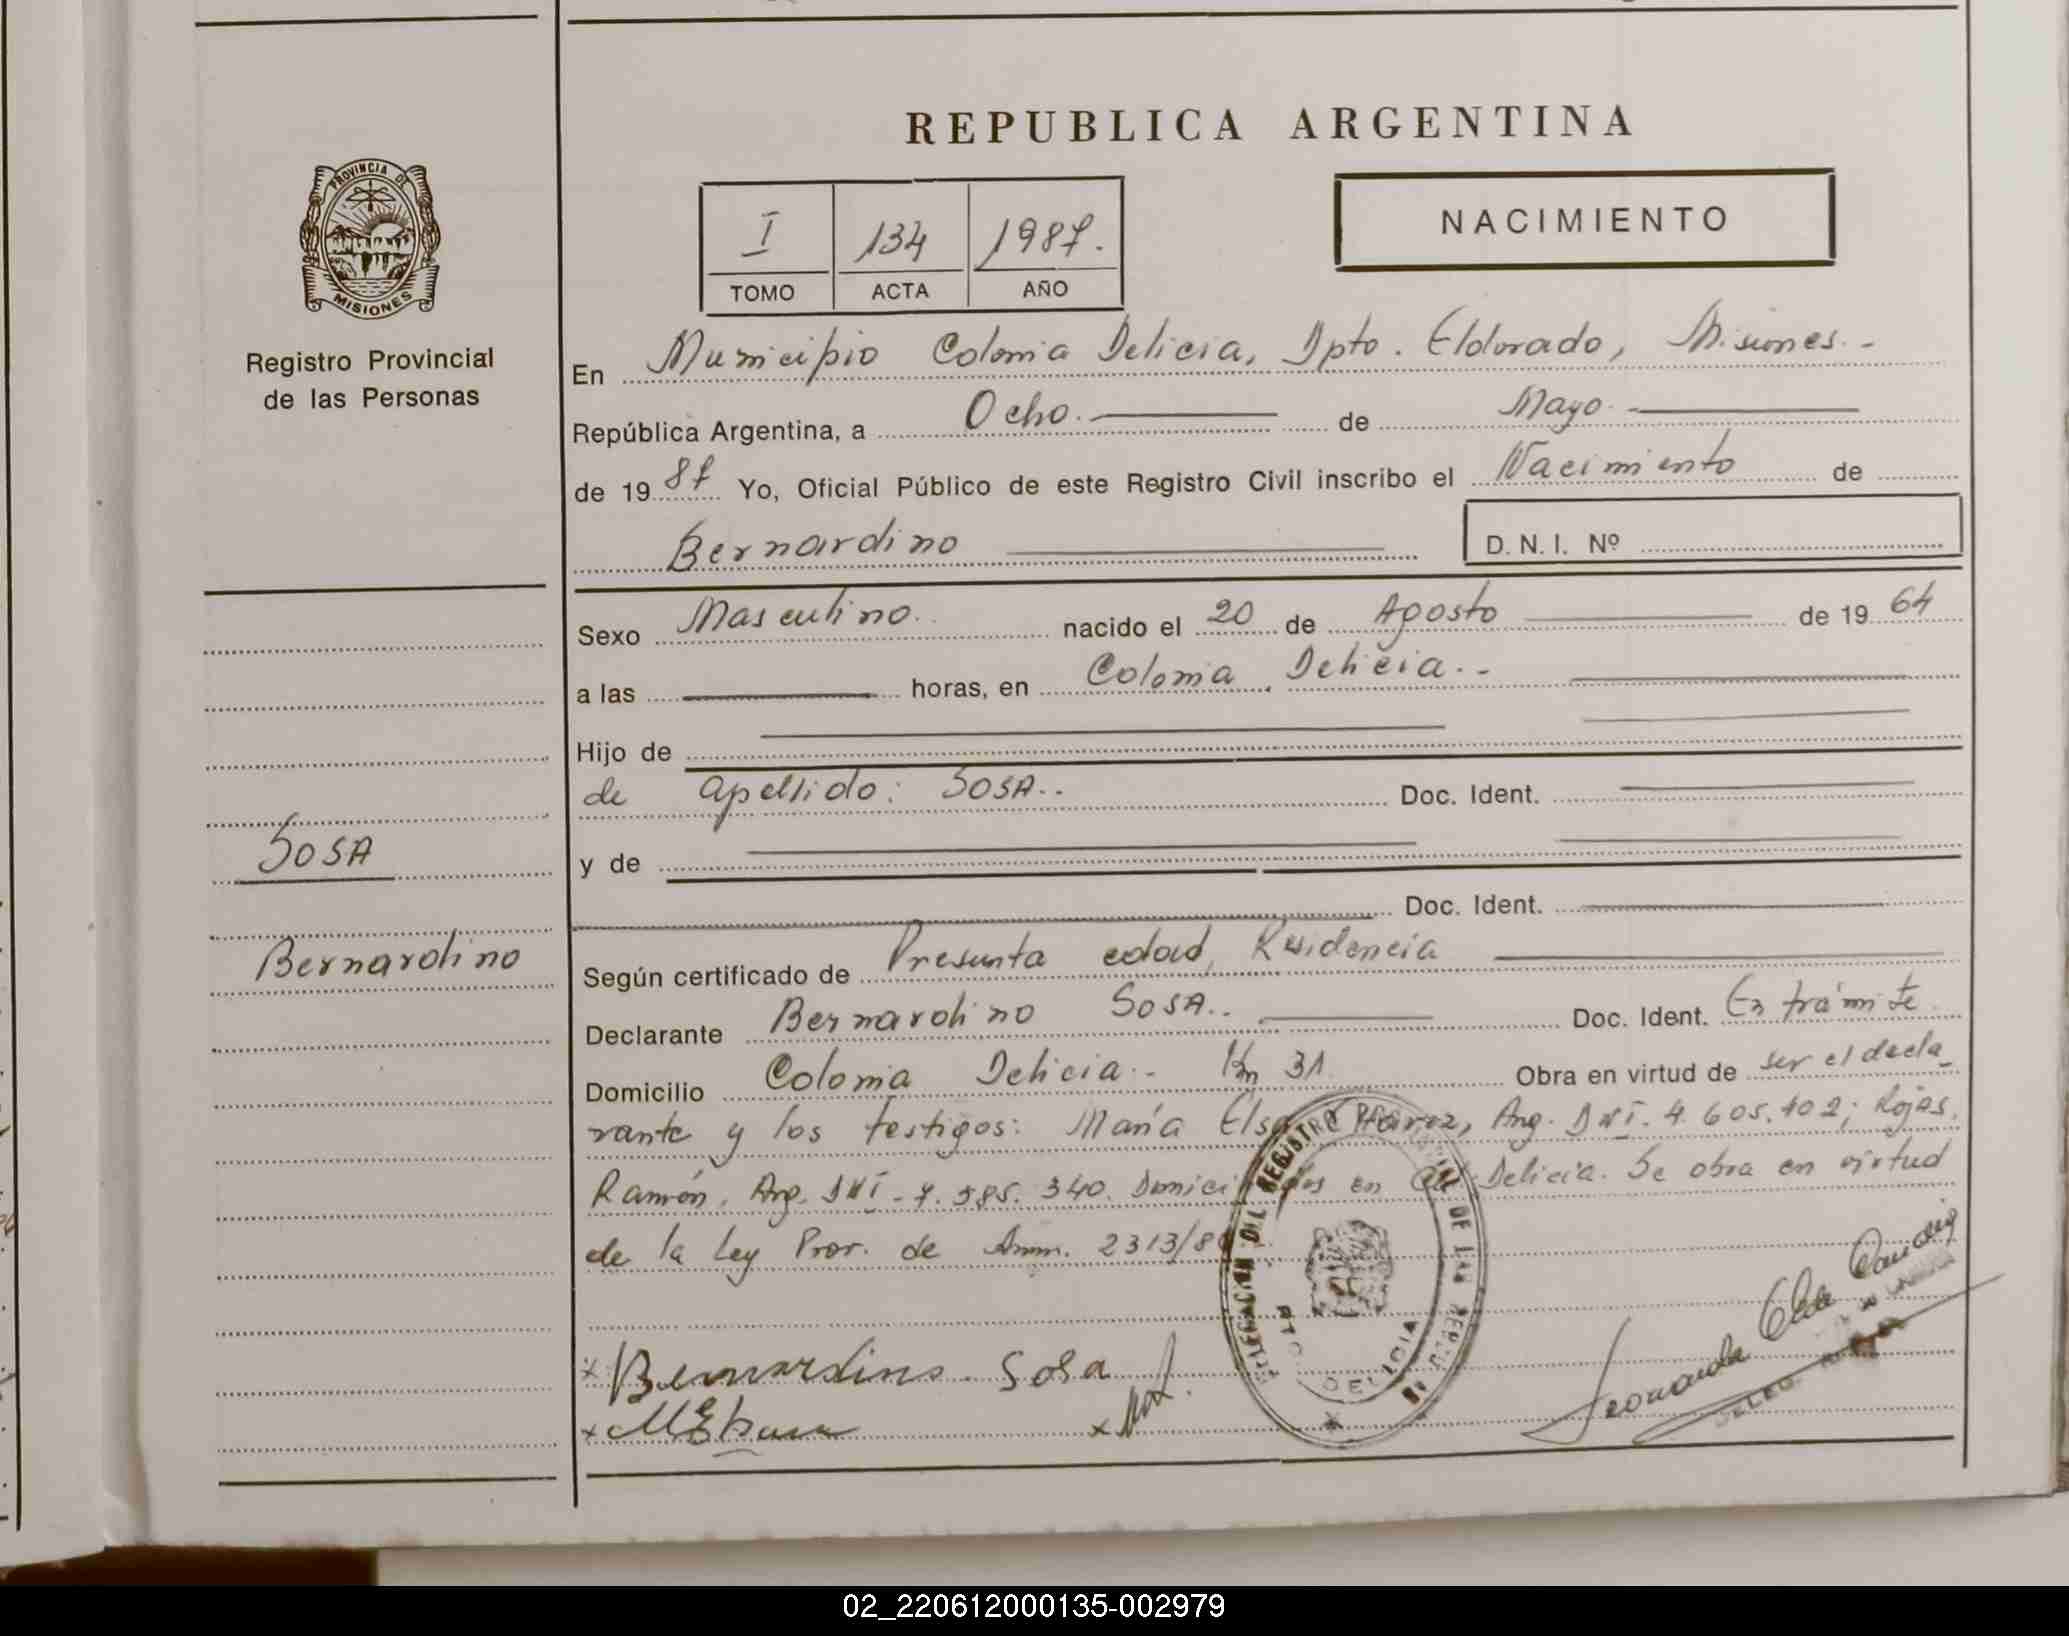 REPUBLICA ARGENTINA
PROVINCIA DE
MISIONES
Registro Provincial
de las Personas
I 134 1987.
TOMO ACTA AÑO
NACIMIENTO
En Municipio Colonia Delicia, Dpto. Eldorado, Misiones.-
República Argentina, a Ocho. de Mayo.
de 19 87 Yo, Oficial Público de este Registro Civil inscribo el Nacimiento de
Bernardino D. N. I. Nº
Sexo Masculino. nacido el 20 de Agosto de 19 64
a las horas, en Colonia Delicia.-
Hijo de
de apellido: SOSA.. Doc. Ident.
y de
Doc. Ident.
SOSA
Bernardino
Según certificado de Presunta edad, Residencia
Declarante Bernardino SOSA.. Doc. Ident. En trámite
Domicilio Colonia Delicia.- Km 31 Obra en virtud de ser el decla-
rante y los testigos: María Elsa Arg. DNI. 4.605.102; Rojas,
Ramón, Arg. DNI - 7.585.340. en Delicia. Se obra en virtud
de la Ley Prov. de Amn. 2313/86
x Bernardino Sosa
DELEGACION DEL REGISTRO PROVINCIAL DE LAS PERSONAS
PTO. DELICIA
02_220612000135-002979